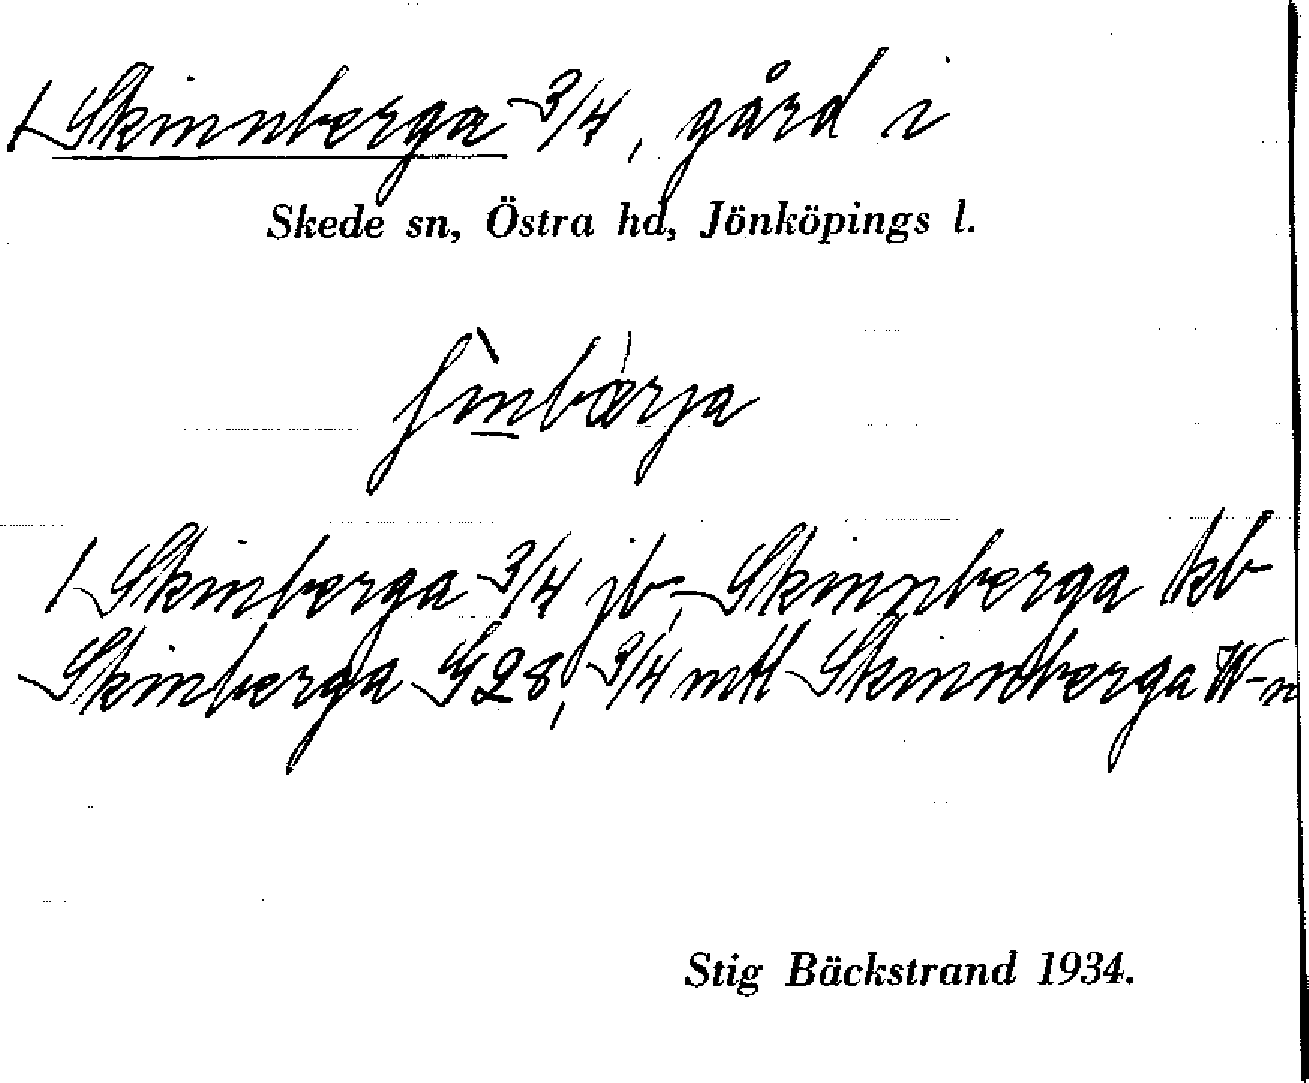 1 Skinnberga 3/4, gård i
Skede sn, Östra hd, Jönköpings l.
1 Skinberga 3/4 jb, Skinnberga kb
Skinberga G28, 3/4 mtl Skinnberga W-n
Stig Bäckstrand 1934.